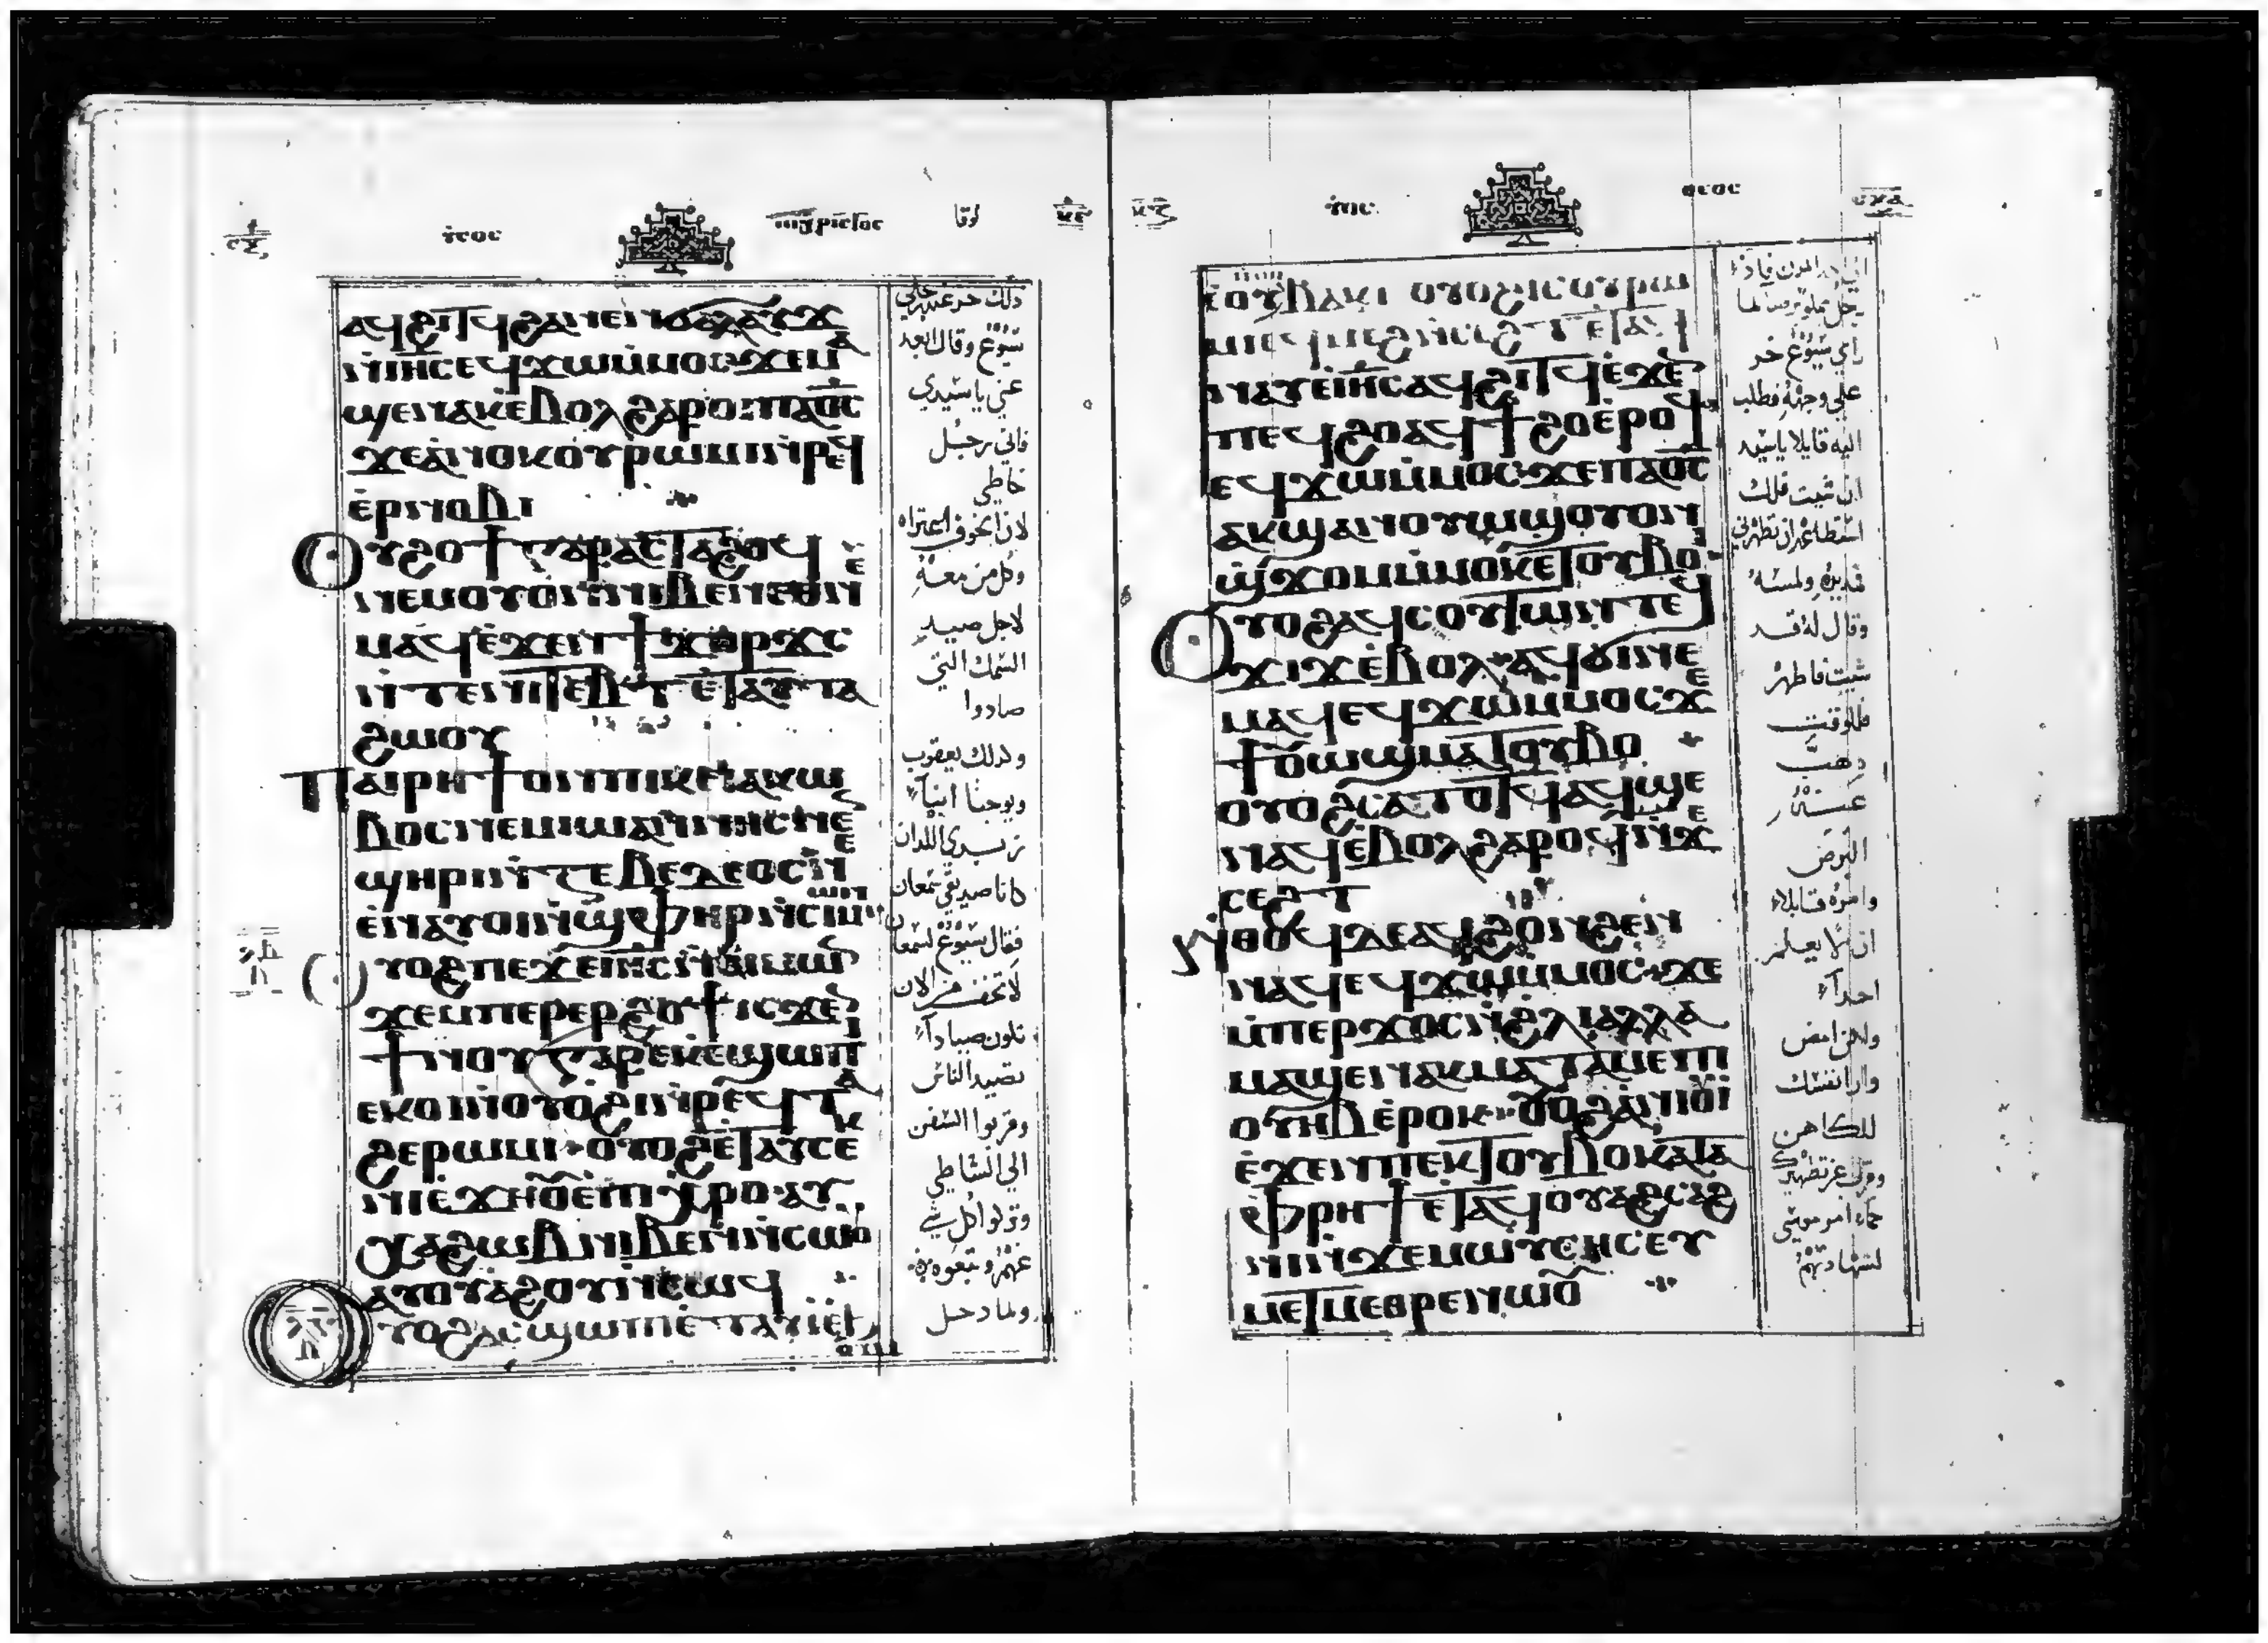 ⲓⲥⲟⲥ
ⲡⲭ̅ⲣⲓⲥⲧⲟⲥ
لوقا
ⲁϥϩⲓⲧϥ ϧⲁⲛⲉⲛϭⲁⲗⲁⲩϫ
ⲛⲓⲏ̅ⲥ ⲉϥϫⲱⲙⲙⲟⲥ ϫⲉ ⲙⲁ
ϣⲉⲛⲁⲕ ⲉⲃⲟⲗ ϩⲁⲣⲟⲓ ⲡⲁⲟ̅ⲥ
ϫⲉ ⲁⲛⲟⲕ ⲟⲩⲣⲱⲙⲓ ⲛⲣⲉϥ
ⲉⲣⲛⲟⲃⲓ
ⲟⲩϩⲟϯ ⲅⲁⲣ ⲁⲥⲧⲁϩⲟϥ
ⲛⲉⲙ ⲟⲩⲟⲛ ⲛⲓⲃⲉⲛ ⲉⲑⲛⲉ
ⲙⲁϥ ⲉϫⲉⲛ ϯϫⲟⲣϫⲥ
ⲛⲧⲉ ⲛⲓⲧⲉⲃⲧ ⲉⲧⲁⲩⲧⲁ
ϩⲱⲟⲩ
ⲡⲁⲓⲣⲏϯ ⲟⲛ ⲡⲓⲕⲉⲓⲁⲕⲱ
ⲃⲟⲥ ⲛⲉⲙ ⲓⲱⲁⲛⲛⲏⲥ ⲛⲉⲛ
ϣⲏⲣⲓ ⲛⲍⲉⲃⲉⲇⲉⲟⲥ ⲛⲏ
ⲉⲛⲁⲩⲟⲓ ⲛϣⲫⲏⲣ ⲛⲥⲓⲙⲱⲛ
ⲟⲩⲟϩ ⲡⲉϫⲉ ⲓⲏ̅ⲥ ⲛⲥⲓⲙⲱⲛ
ϫⲉ ⲙⲡⲉⲣⲉⲣϩⲟϯ ⲓⲥϫⲉⲛ
ϯⲛⲟⲩ ⲅⲁⲣ ⲉⲕⲉϣⲱⲡⲓ
ⲉⲕⲟⲓ ⲛⲟⲩⲟϩⲓ ⲛⲣⲉϥⲧⲁ
ϩⲉ ⲣⲱⲙⲓ ⲟⲩⲟϩ ⲉⲧⲁⲩⲥⲉ
ⲛⲓⲉϫⲏⲟⲩ ⲉⲡⲓⲭⲣⲟ ⲁⲩ
ⲭⲁ ϩⲱⲃ ⲛⲓⲃⲉⲛ ⲛⲥⲱⲟⲩ
ⲁⲩⲟⲩⲁϩⲟⲩ ⲛⲥⲱϥ
ⲟⲩⲟϩ ⲁⲥϣⲱⲡⲓ ⲉⲧⲁϥⲓ ⲉϧ
ⲟⲩⲛ
ذلك خر عند رجلي
يسوع وقال ابعد
عني يا سيدي
فاني رجل
خاطي
لان الخوف اعتراه
وكل من معه
لاجل صيد
السمك التي
صادوا
وكذلك يعقوب
ويوحنا ابنا
زبدي اللذان
كانا صديقي سمعان
فقال يسوع لسمعان
لا تخف من الان
تكون صيادا
تصيد الناس
وقربوا السفن
الي الشاطي
وتركوا كل شي
عنهم وتبعوه
ولما دخل
ⲓⲏⲥ
ⲑⲉⲟⲥ
ⲉⲟⲩⲃⲁⲕⲓ ⲟⲩⲟϩ ⲓⲥ ⲟⲩⲣⲱ
ⲙⲓ ⲉϥⲙⲉϩ ⲛⲥⲉϩⲧ ⲉⲧⲁϥ
ⲛⲁⲩ ⲉⲓⲏ̅ⲥ ⲁϥϩⲓⲧϥ ⲉϫⲉⲛ
ⲡⲉϥϩⲟ ⲁϥϯϩⲟ ⲉⲣⲟϥ
ⲉϥϫⲱⲙⲙⲟⲥ ϫⲉ ⲡⲁⲟ̅ⲥ
ⲁⲕϣⲁⲛⲟⲩⲱϣ ⲟⲩⲟⲛ
ϣϫⲟⲙ ⲙⲙⲟⲕ ⲉⲧⲟⲩⲃⲟⲓ
ⲟⲩⲟϩ ⲁϥⲥⲟⲩⲧⲱⲛ ⲧⲉϥ
ϫⲓϫ ⲉⲃⲟⲗ ⲁϥϭⲓ ⲛⲉ
ⲙⲁϥ ⲉϥϫⲱⲙⲙⲟⲥ ϫⲉ
ϯⲟⲩⲱϣ ⲙⲁⲧⲟⲩⲃⲟ
ⲟⲩⲟϩ ⲥⲁⲧⲟⲧϥ ⲁϥϣⲉ
ⲛⲁϥ ⲉⲃⲟⲗ ϩⲁⲣⲟϥ ⲛϫⲉ
ⲥⲉϩⲧ
ⲛⲑⲟϥ ⲇⲉ ⲁϥϩⲟⲛϩⲉⲛ
ⲛⲁϥ ⲉϥϫⲱⲙⲙⲟⲥ ϫⲉ
ⲙⲡⲉⲣϫⲟⲥ ⲛϩⲗⲓ ⲁⲗⲗⲁ
ⲙⲁϣⲉⲛⲁⲕ ⲙⲁⲧⲁⲙⲉ ⲡⲓ
ⲟⲩⲏⲃ ⲉⲣⲟⲕ ⲟⲩⲟϩ ⲁⲛⲓⲟⲩⲓ
ⲉϫⲉⲛ ⲡⲉⲕⲧⲟⲩⲃⲟ ⲕⲁⲧⲁ
ⲫⲣⲏϯ ⲉⲧⲁϥⲟⲩⲁϩⲥⲁϩ
ⲛⲓ ⲛϫⲉ ⲙⲱⲩⲥⲏⲥ ⲉⲩ
ⲙⲉⲧⲙⲉⲑⲣⲉ ⲛⲱⲟⲩ
راي يسوع خر
على وجهه فطلب
اليه قايلا يا سيد
ان شيت فلك
استطاعه ان تطهرني
فمد يده ولمسه
وقال له قد
شيت فاطهر
فللوقت
ذهب
عنه
البرص
وامره قايلا
ان لا يعلم
احدا
ولكن امض
وارا نفسك
للكاهن
وقرب عن تطهيرك
كما امر موسي
لشهادتهم